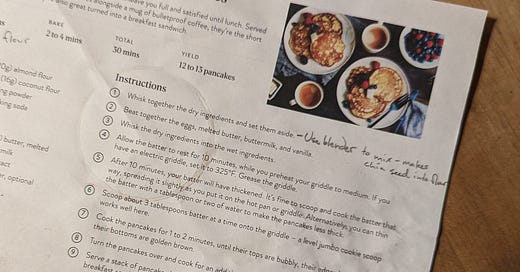 you full and satisfied until lunch. Served
alongside a mug of bulletproof coffee, they're the short
also great turned into a breakfast sandwich.
BAKE
2 to 4 mins
TOTAL
30 mins
YIELD
12 to 13 pancakes
flour
almond flour
(16g) coconut flour
powder
soda
butter, melted
optional
Instructions
1 Whisk together the dry ingredients and set them aside. - Use blender to mix - makes
chia seed into flour
2 Beat together the eggs, melted butter, buttermilk, and vanilla.
3 Whisk the dry ingredients into the wet ingredients.
4 Allow the batter to rest for 10 minutes, while you preheat your griddle to medium. If you
have an electric griddle, set it to 325°F. Grease the griddle.
5 After 10 minutes, your batter will have thickened. It's fine to scoop and cook the batter that
way, spreading it slightly as you put it on the hot pan or griddle. Alternatively, you can thin
the batter with a tablespoon or two of water to make the pancakes less thick.
6 Scoop about 3 tablespoons batter at a time onto the griddle - a level jumbo cookie scoop
works well here.
7 Cook the pancakes for 1 to 2 minutes, until their tops are bubbly, their edges
their bottoms are golden brown.
8 Turn the pancakes over and cook for an
9 Serve a stack of pancakes
breakfast